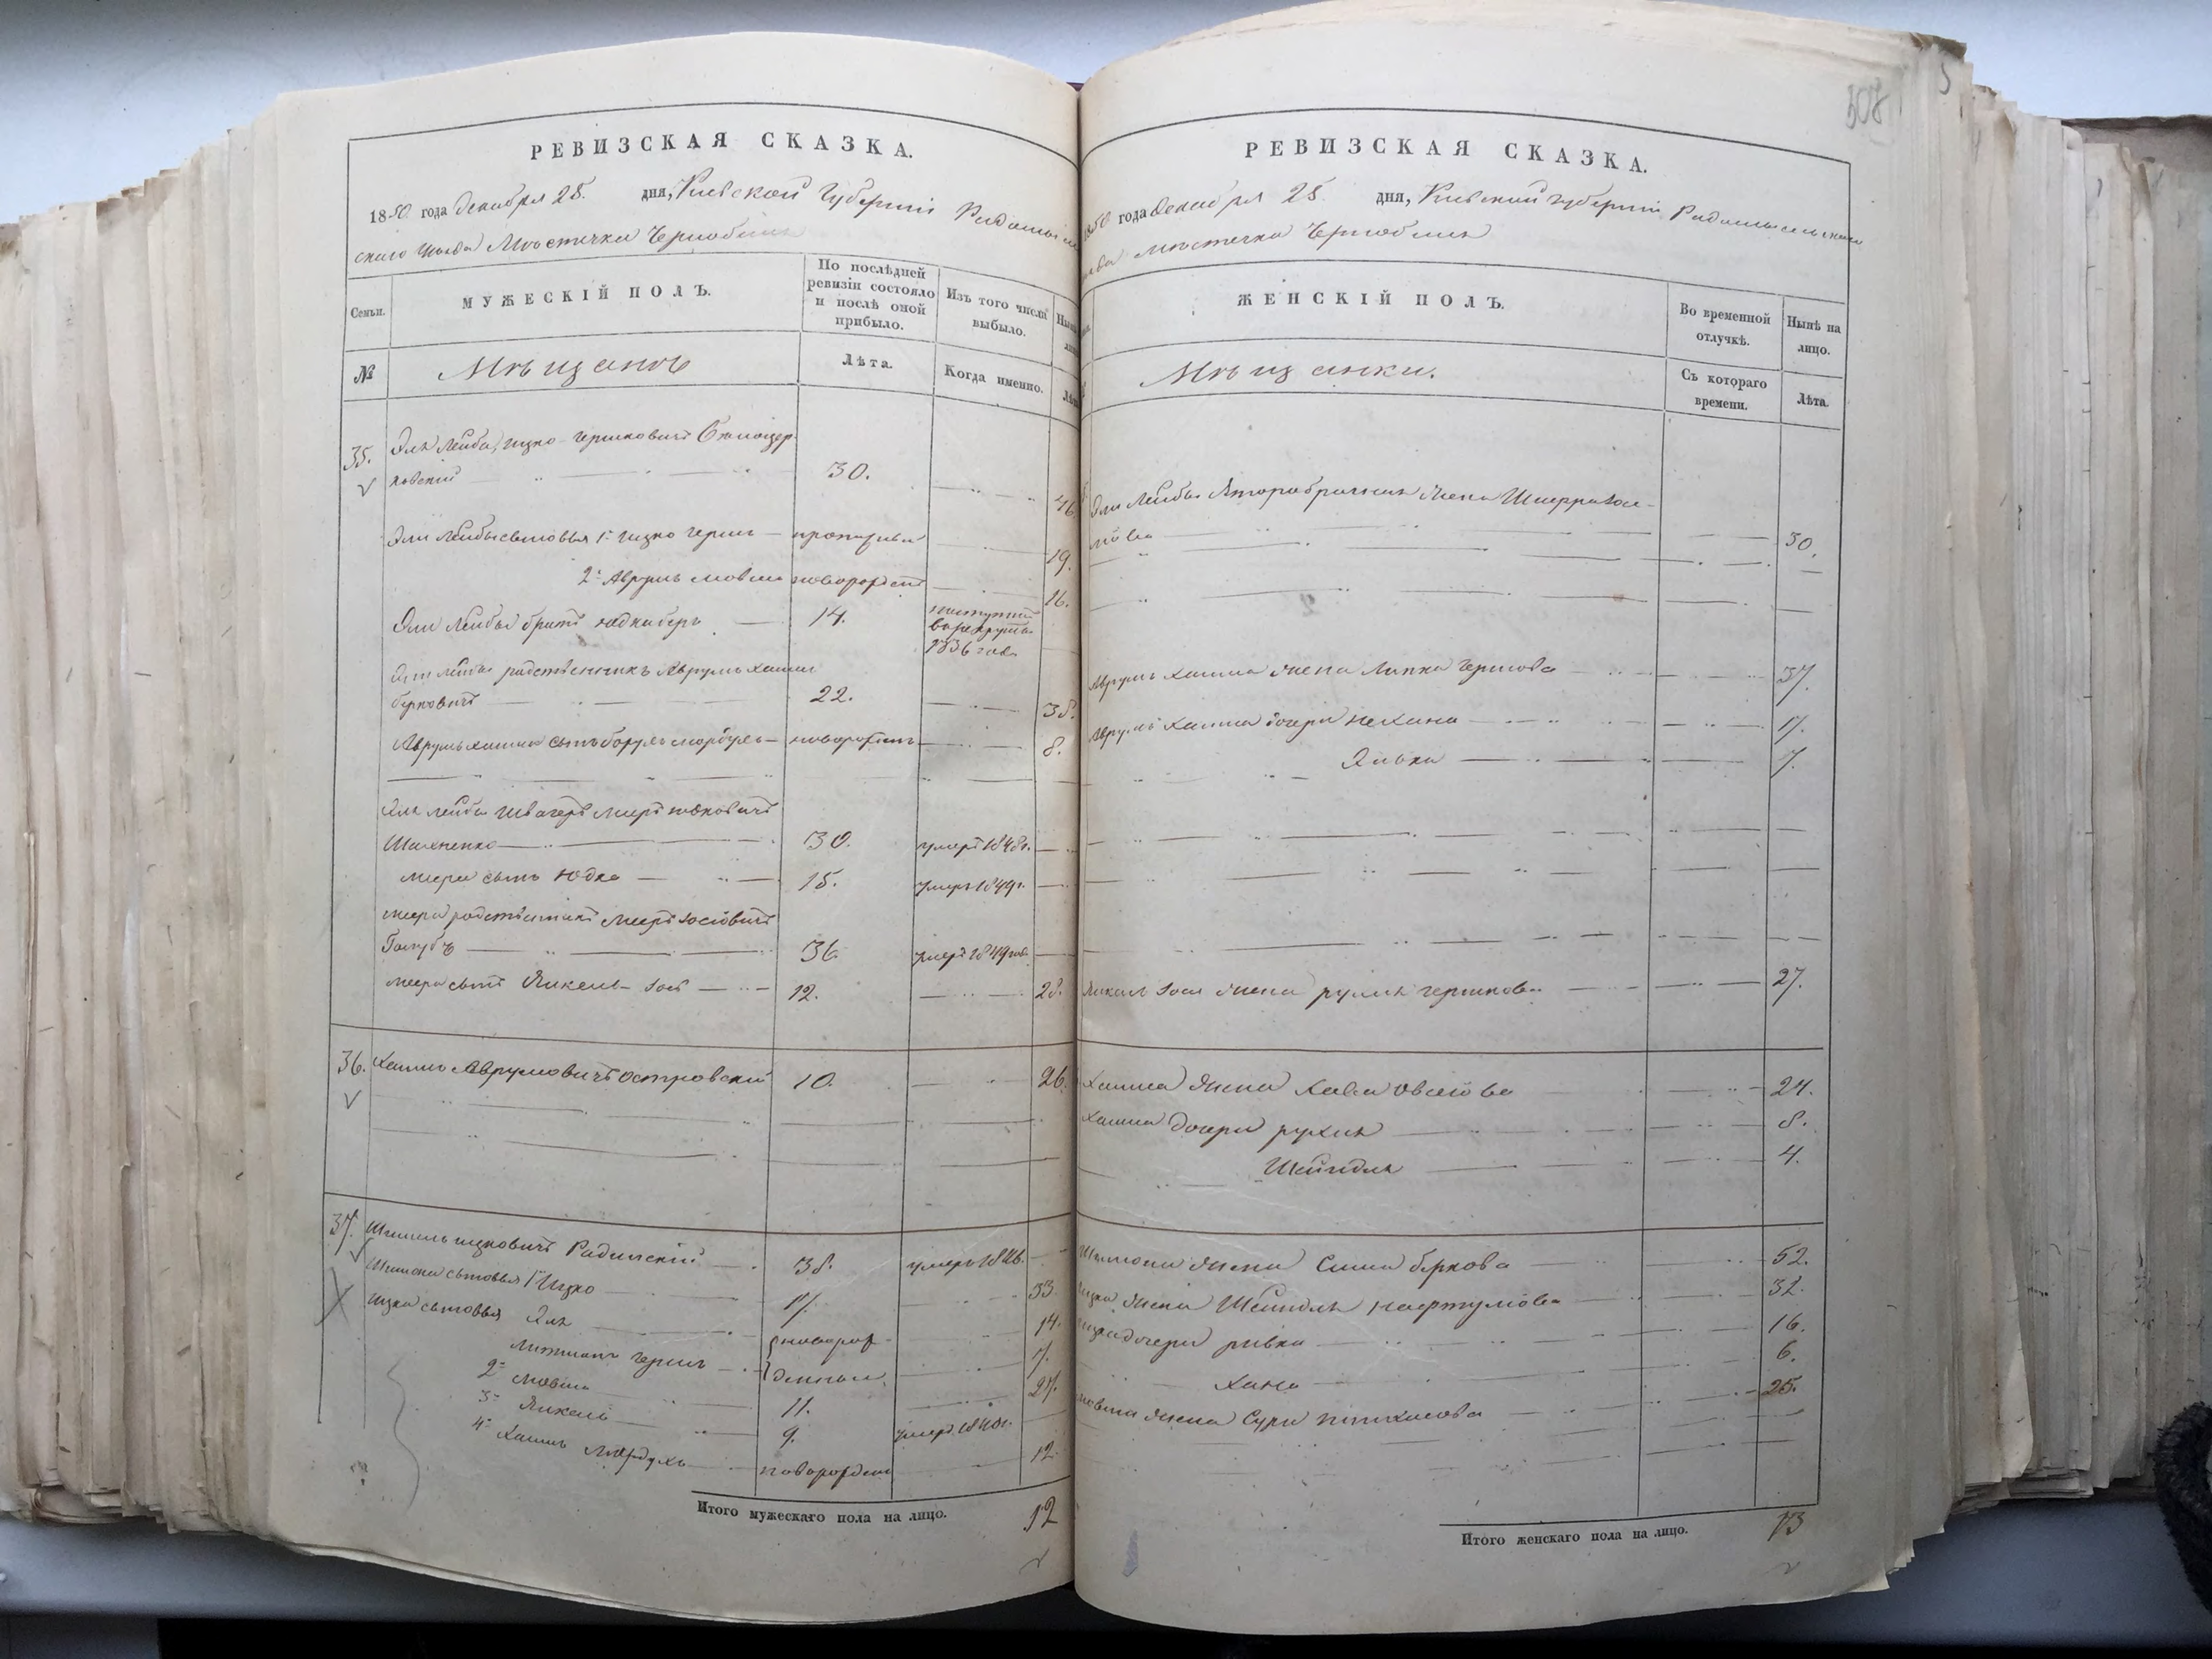 РЕВИЗСКАЯ СКАЗКА.
1850 года декабря 28. дня, Киевской губернии Радомысль
скаго уезда Местечка Чернобыля
Семьи.
МУЖЕСКІЙ ПОЛЪ.
По послѣдней
ревизіи состояло
и послѣ оной
прибыло.
Изъ того числа
выбыло.
№
Мѣщане
Лѣта.
Когда именно.
35.
Эль Лейба Ицко Гершковичъ
ковскій 30. 46.
Эли Лейбы сыновья 1й Ицко Герш 19.
2й Аврумъ Мовша новорожден 16.
Эли Лейбы братъ Юдка Беръ 14. поступилъ
въ рекруты
1836 года
Эли Лейбы родственникъ Аврумъ Хаимъ
Берковичъ 22. 38.
Аврумъ Хаима сынъ Борухъ Мордухъ новорожден 8.
Эли Лейбы швагеръ Мееръ Юдковичъ
30. умеръ 1848г.
Меера сынъ Юдка 15. умеръ 1849г.
Меера родственникъ Мееръ Іосіовичъ
Голубъ 36. умеръ 1849 год
Меера сынъ Янкель Іось 12. 28.
36. Хаимъ Аврумовичъ Островскій 10. 26.
37. Шимонъ Ицковичъ Радинскій 38. умеръ 1846.
Шимона сыновья 1й Ицко 17. 33.
Ицка сыновья Эль новорож 14.
Гершъ денные 7.
2й Мовша 11. 27.
3й Янкель 9. умеръ 1840г.
4й Хаимъ Мордухъ новорожден 12.
Итого мужескаго пола на лицо. 12
508
РЕВИЗСКАЯ СКАЗКА.
1850 года декабря 28 дня, Киевской губернии Радомысльскаго
уезда местечка Чернобыля
ЖЕНСКІЙ ПОЛЪ.
Во временной
отлучкѣ.
Нынѣ на
лицо.
Мѣщанки.
Съ котораго
времени.
Лѣта.
Эли Лейбы второбрачная жена Шифра
30.
Аврумъ Хаима жена Липка Гершова 37.
Аврумъ Хаима дочери Нехама 17.
Элька 7.
Янкель Іося жена Рухля Гершкова 27.
Хаима жена Хава Овсіова 24.
Хаима дочери Рухля 8.
Шейндля 4.
Шимона жена Сима Беркова 52.
Ицка жена Шейндля Нафтулова 32.
Ицка дочери Ривка 16.
Хана 6.
Мовши жена Сура Пинхасова 25.
Итого женскаго пола на лицо. 13